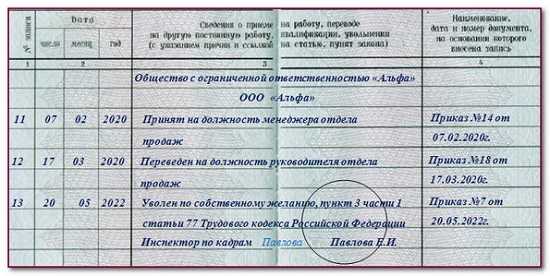 № записи
Дата
Сведения о приеме на работу, переводе
на другую постоянную работу, квалификации, увольнении
(с указанием причин и ссылкой на статью, пункт закона)
Наименование,
дата и номер документа,
на основании которого
внесена запись
число месяц год
1 2 3 4
Общество с ограниченной ответственностью «Альфа»
ООО «Альфа»
11 07 02 2020 Принят на должность менеджера отдела Приказ №14 от
продаж 07.02.2020г.
12 17 03 2020 Переведен на должность руководителя отдела Приказ №18 от
продаж 17.03.2020г.
13 20 05 2022 Уволен по собственному желанию, пункт 3 части 1 Приказ №7 от
статьи 77 Трудового кодекса Российской Федерации 20.05.2022г.
Инспектор по кадрам Павлова Павлова Е.И.